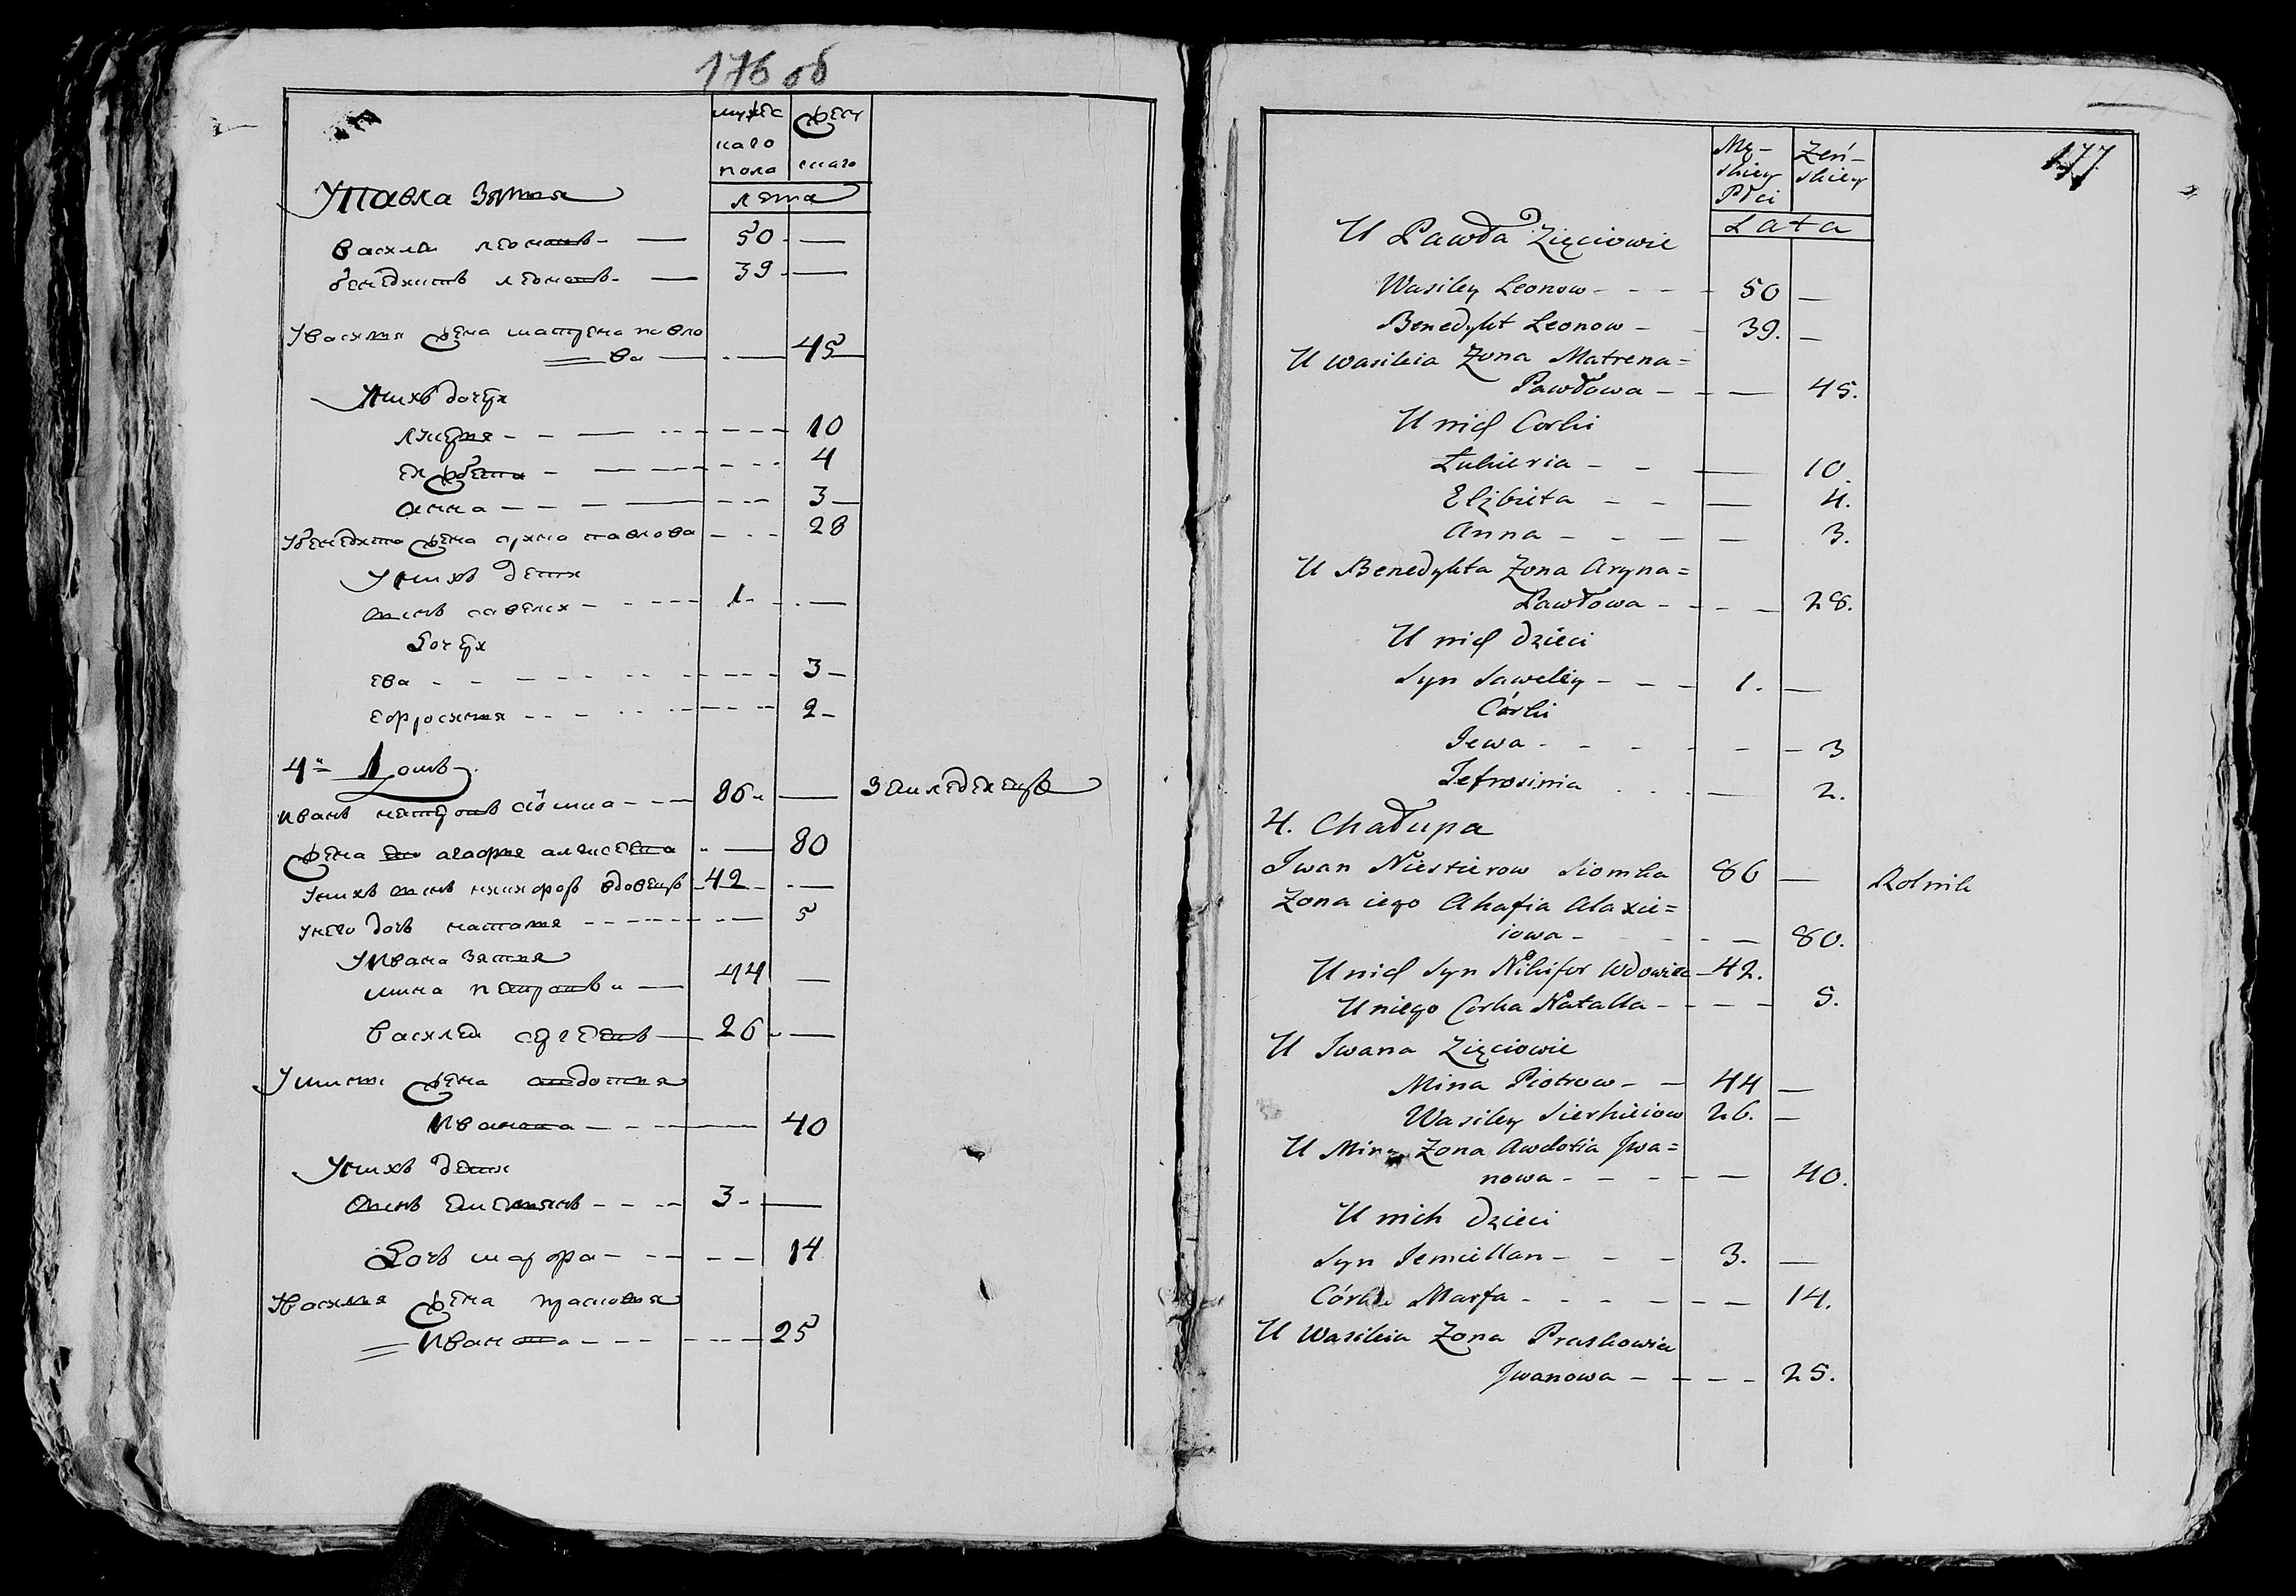 176 об
мужес
каго
пола
жен
скаго
лета
У Павла Зятья
Василей леоновъ - — 50 - —
бенедиктъ леоновъ - — 39 - —
У Василия жена матрена павло
= ва — - — 45
У нихъ дочери
лукеря - - — 10
елжбета - — 4
анна - - - — 3 —
У бенедикта жена арина павлова - - - 28
У нихъ дети
сынъ савелей - - - - - 1 - —
Дочери
ева - - - - - - 3 -
ефросиния - - - - - - 2 -
4й Домъ
Иванъ нестеровъ сiомка - - - 86 - — Земледелецъ
жена его агафия алексеева - — 80
У нихъ сынъ никифоръ вдовецъ - 42 - —
У него дочь наталя - - - - - - 5
У Ивана Зятья
мина петровъ - — 44 —
Василей сергеевъ — 26 - —
У мины жена авдотия
Иванова - - - — 40
У нихъ дети
сынъ емелиянъ - - - - 3 - —
Дочъ марфа - - - - — 14
У Василия жена прасковия
= Иванова - - - - - - 25
177
Mę-
skiey
Płci
Żeń-
skiey
Lata
U Pawła Zięciowie
Wasiley Leonow - - - - 50 —
Benedykt Leonow - - 39. —
U Wasileia Żona Matrena=
Pawłowa - - — 45.
U nich Corki
Łukieria - - — 10.
Elżbieta - - — 4.
Anna - - - — 3.
U Benedykta Żona Aryna=
Pawłowa - - - — 28.
U nich dzieci
Syn Saweley - - - 1. —
Córki
Iewa - - - - - - 3
Iefrosinia . . . — 2.
4. Chałupa
Iwan Niestierow Siomka 86 — Rolnik
Żona iego Ahafia Alaxie=
iowa - - - — 80.
U nich Syn Nikifor Wdowiec - 42.
U niego Corka Natalla - - - - 5.
U Iwana Zięciowie
Mina Piotrow - - 44 —
Wasiley Sierhieiow 26. —
U Miny Żona Awdotia Iwa=
nowa - - - - - — 40.
U nich dzieci
Syn Iemiellan - - - 3. —
Córka Marfa - - - - - - — 14.
U Wasileia Żona Praskowia
Iwanowa - - - - 25.